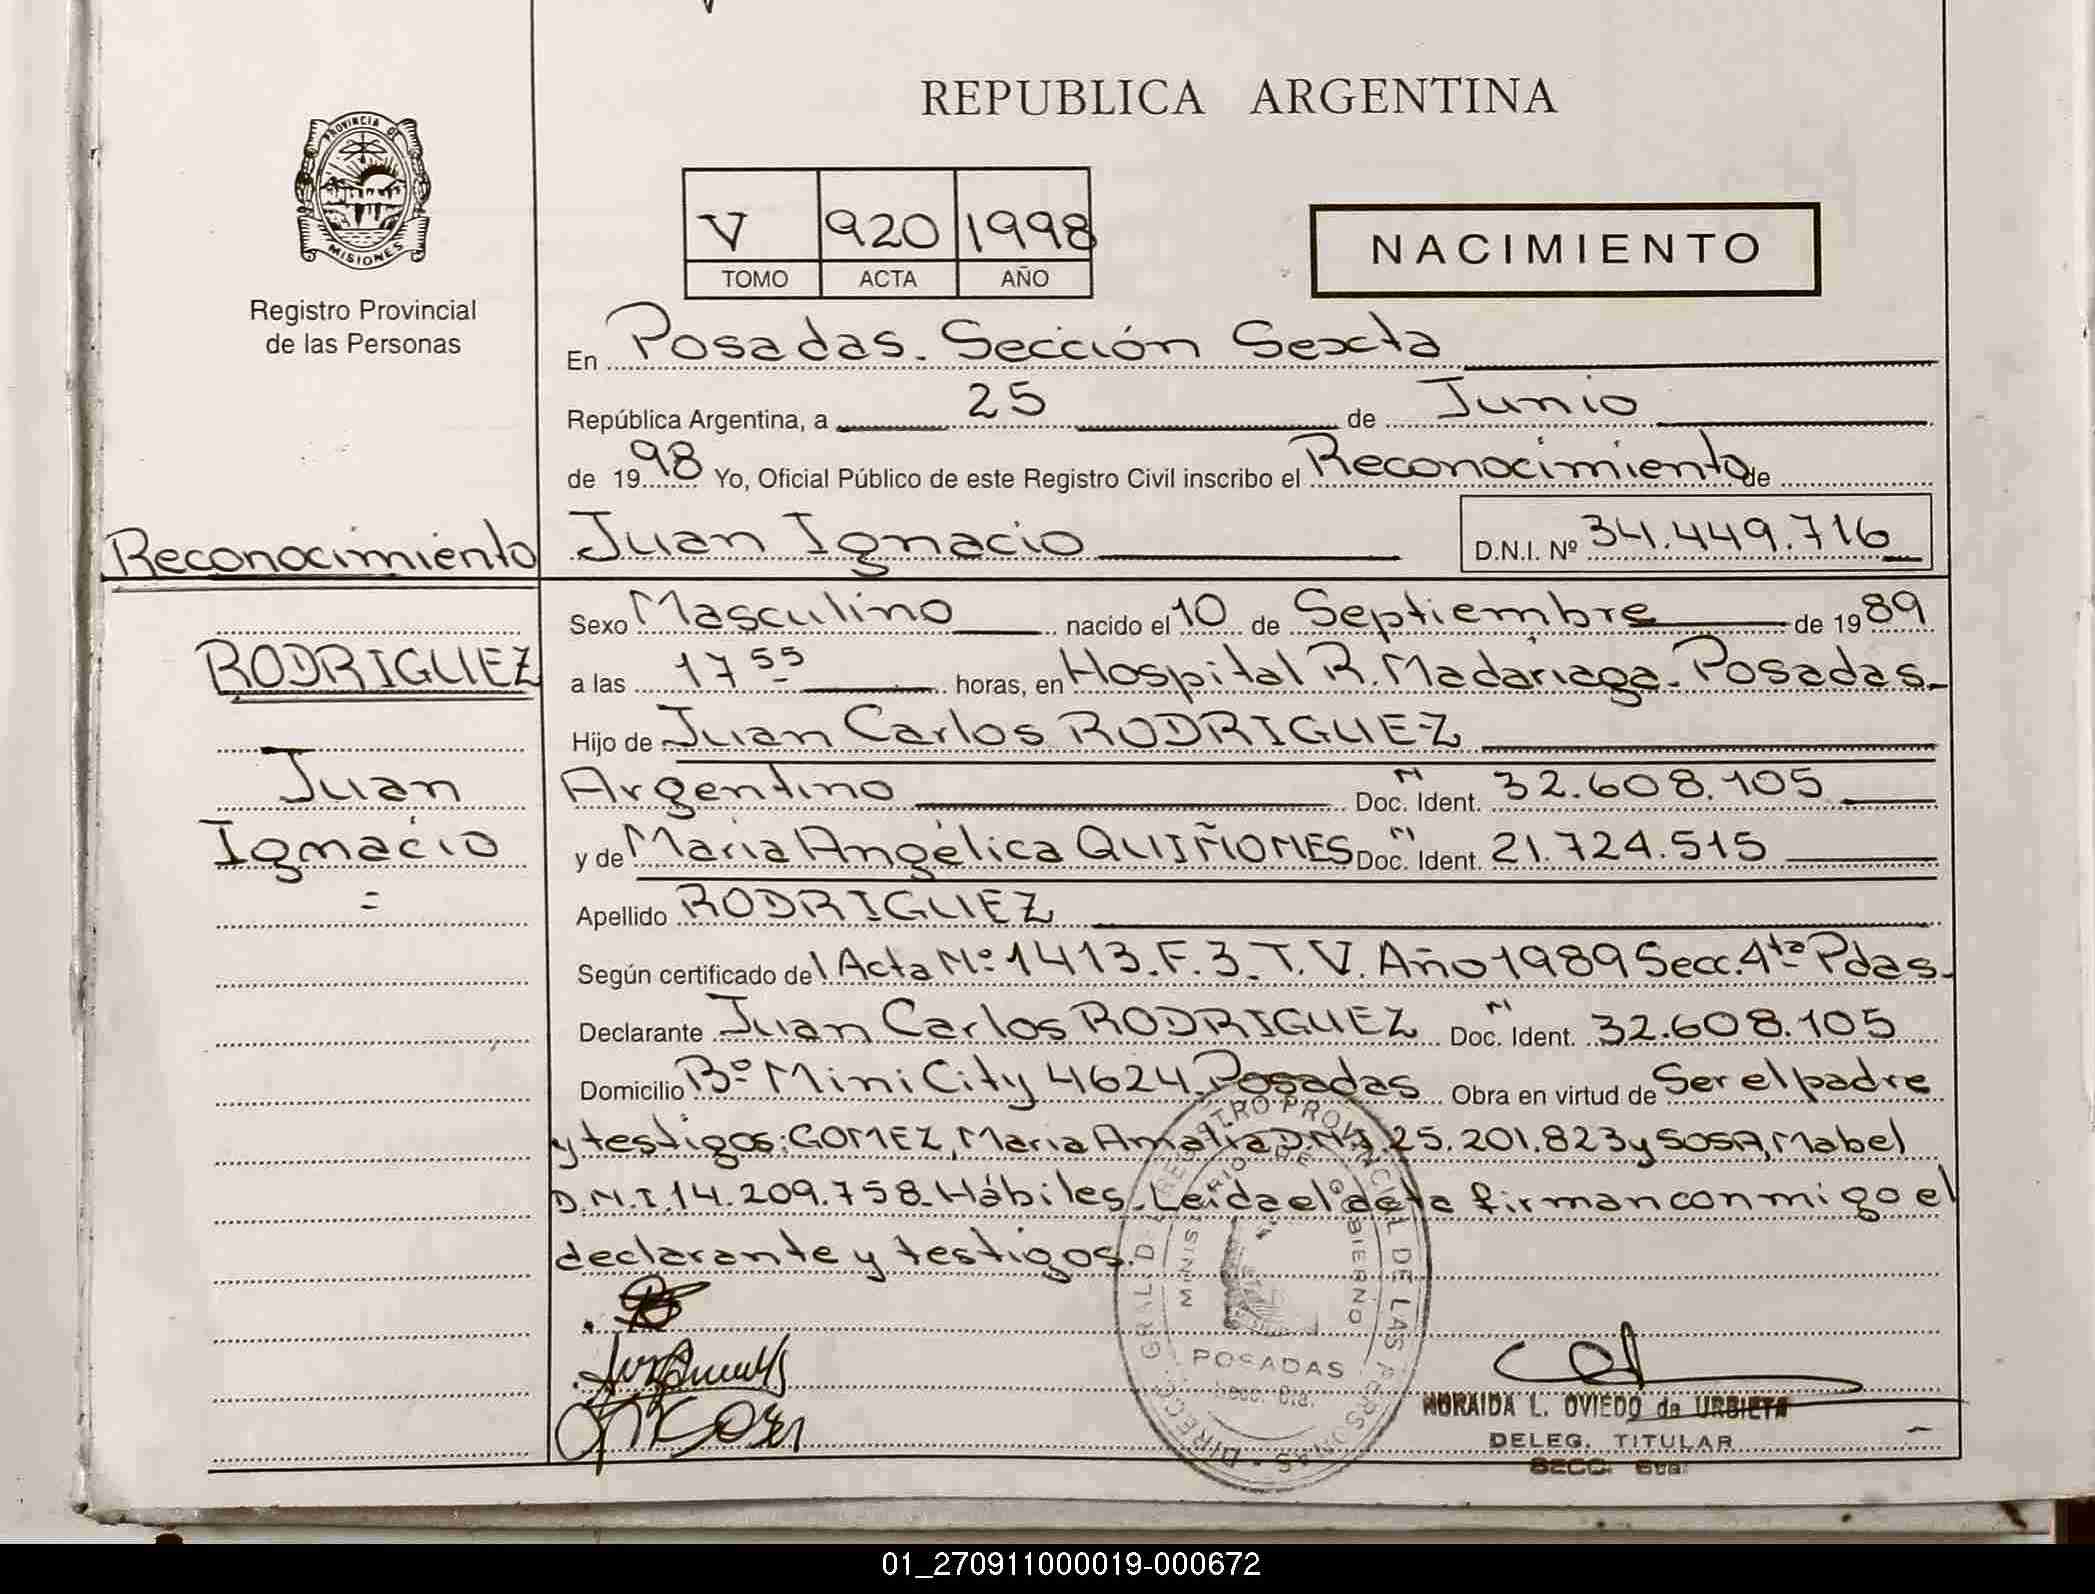 REPUBLICA ARGENTINA
PROVINCIA DE MISIONES
Registro Provincial
de las Personas
V 920 1998
TOMO ACTA AÑO
NACIMIENTO
En Posadas. Sección Sexta
República Argentina, a 25 de Junio
de 1998 Yo, Oficial Público de este Registro Civil inscribo el Reconocimiento de
Juan Ignacio D.N.I. Nº 34.449.716
Reconocimiento
RODRIGUEZ
Juan
Ignacio
=
Sexo Masculino nacido el 10 de Septiembre de 1989
a las 17 55 horas, en Hospital R. Madariaga. Posadas.
Hijo de Juan Carlos RODRIGUEZ
Argentino Doc. N Ident. 32.608.105
y de Maria Angélica QUIÑONES Doc. N Ident. 21.724.515
Apellido RODRIGUEZ
Según certificado del Acta Nº 1413. F. 3. T. V. Año 1989 Secc. 4ta Pdas.
Declarante Juan Carlos RODRIGUEZ Doc. N Ident. 32.608.105
Domicilio Bº Mini City 4624. Posadas Obra en virtud de Ser el padre
y testigos: GOMEZ, Maria Amalia D.N.I. 25.201.823 y SOSA, Mabel
D.N.I. 14.209.758. Hábiles. Leida el acta firman conmigo el
declarante y testigos.
DIRECC. GRAL. DE REGISTRO PROVINCIAL DE LAS PERSONAS
MINISTERIO DE GOBIERNO
POSADAS
NORAIDA L. OVIEDO de URBIETA
DELEG. TITULAR
SECC. 6ta.
01_270911000019-000672